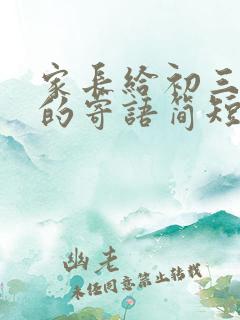 家长给初三
的寄语简短
幽老
未经同意禁止转载